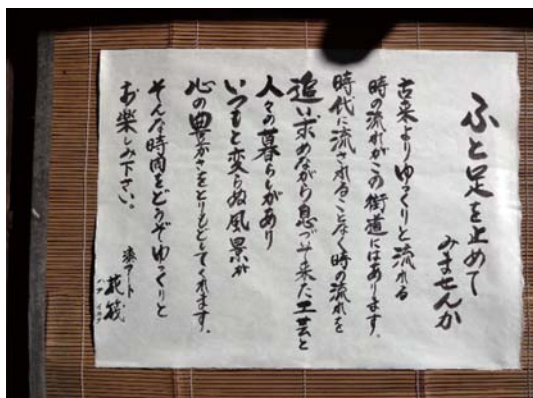 ふと足を止めて
みませんか
古来よりゆっくりと流れる
時の流れがこの街道にはあります。
時代に流されることなく時の流れを
追い求めながら息づせ来た工芸と
人々の暮らしがあり
いつもと変らぬ風景が
心の豊かさをとりもどしてくれます。
そんな時間をどうぞゆっくりと
お楽しみ下さい。
アート
花筏
ハナ イカダ